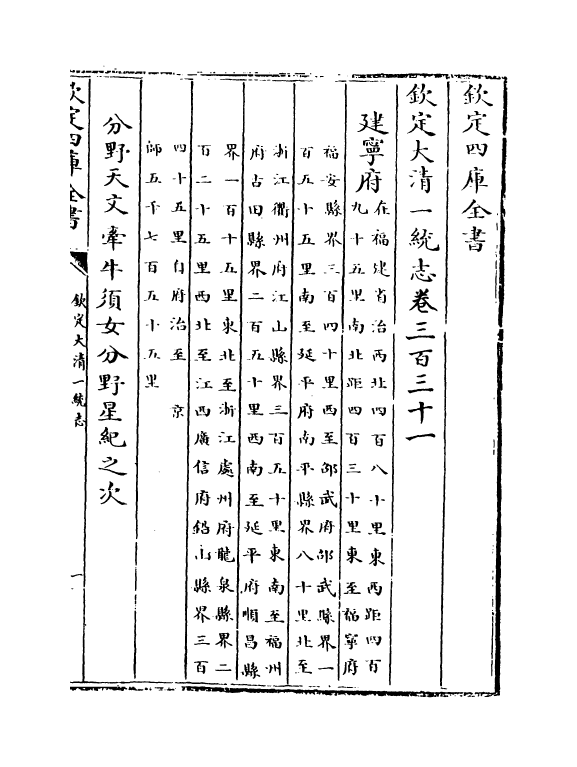 欽定四庫全書
欽定大清一統志卷三百三十一
建寧府
在福建省治西北四百八十里東西距四百
九十五里南北距四百三十里東至福寧府
福安縣界三百四十里西至邵武府邵武縣界一
百五十五里南至延平府南平縣界八十里北至
浙江衢州府江山縣界三百五十里東南至福州
府古田縣界二百五十里西南至延平府順昌縣
界一百十五里東北至浙江處州府龍泉縣界二
百二十五里西北至江西廣信府鉛山縣界三百
四十五里自府治至 京
師五千七百五十五里
分野天文牽牛須女分野星紀之次
欽定四庫全書
欽定大清一統志
一